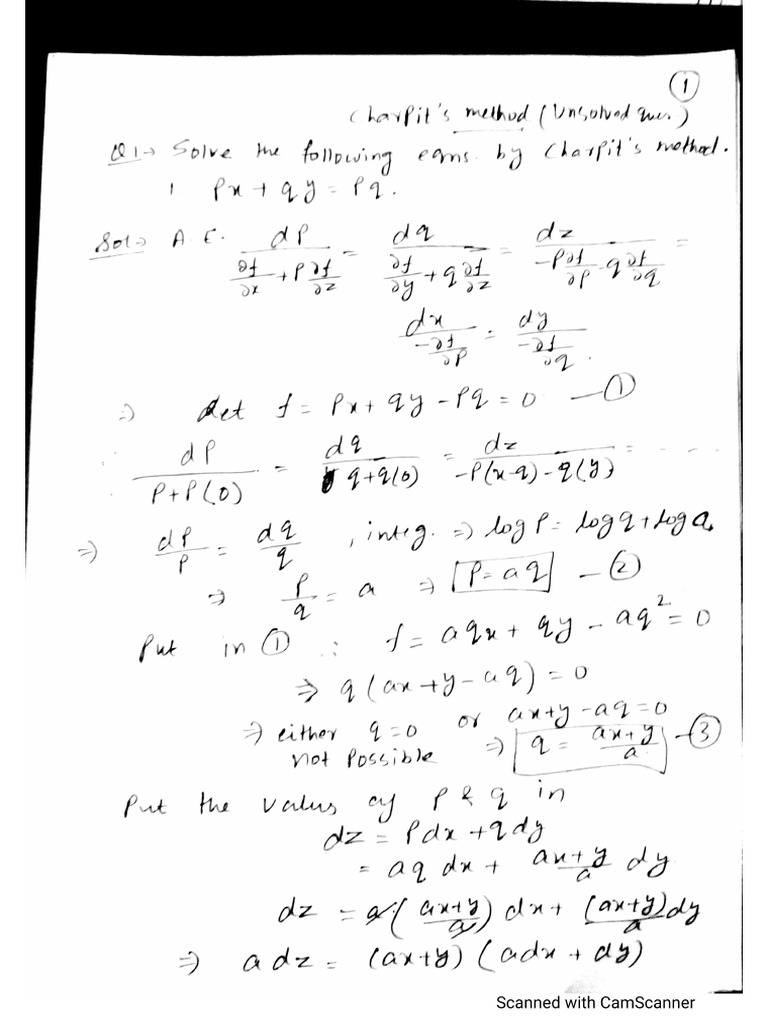 ①
Charpit's method (Unsolved ques.)
Q1→ Solve the following eqns. by Charpit's method.
1 Px + qy = Pq.
Sol→ A.E. dP/(∂f/∂x + P ∂f/∂z) = dq/(∂f/∂y + q ∂f/∂z) = dz/(-P ∂f/∂p - q ∂f/∂q) =
dx/(-∂f/∂p) = dy/(-∂f/∂q).
⇒ Let f = Px + qy - Pq = 0 —①
dP/(P+P(0)) = dq/(q+q(0)) = dz/(-P(x-q)-q(y)) = - - -
⇒ dP/P = dq/q , integ. ⇒ log P = log q + log a
⇒ P/q = a ⇒ P = aq —②
Put in ① ∴ f = aqx + qy - aq² = 0
⇒ q(ax+y-aq) = 0
⇒ either q=0 or ax+y-aq=0
not possible ⇒ q = (ax+y)/a —③
Put the values of P & q in
dz = Pdx + qdy
= aq dx + (ax+y)/a dy
dz = a((ax+y)/a) dx + (ax+y)/a dy
⇒ a dz = (ax+y) (adx + dy)
Scanned with CamScanner